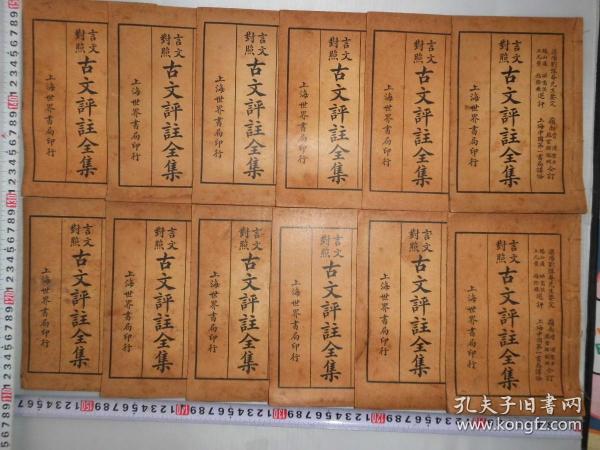 言文對照
古文評註全集
上海世界書局印行
言文對照
古文評註全集
上海世界書局印行
言文對照
古文評註全集
上海世界書局印行
言文對照
古文評註全集
上海世界書局印行
言文對照
古文評註全集
上海世界書局印行
言文對照
古文評註全集
上海世界書局印行
言文對照
古文評註全集
上海世界書局印行
言文對照
古文評註全集
上海世界書局印行
言文對照
古文評註全集
上海世界書局印行
言文對照
古文評註全集
上海世界書局印行
言文對照
古文評註全集
上海世界書局印行
言文對照
古文評註全集
上海世界書局印行
孔夫子旧書网
www.kongfz.com